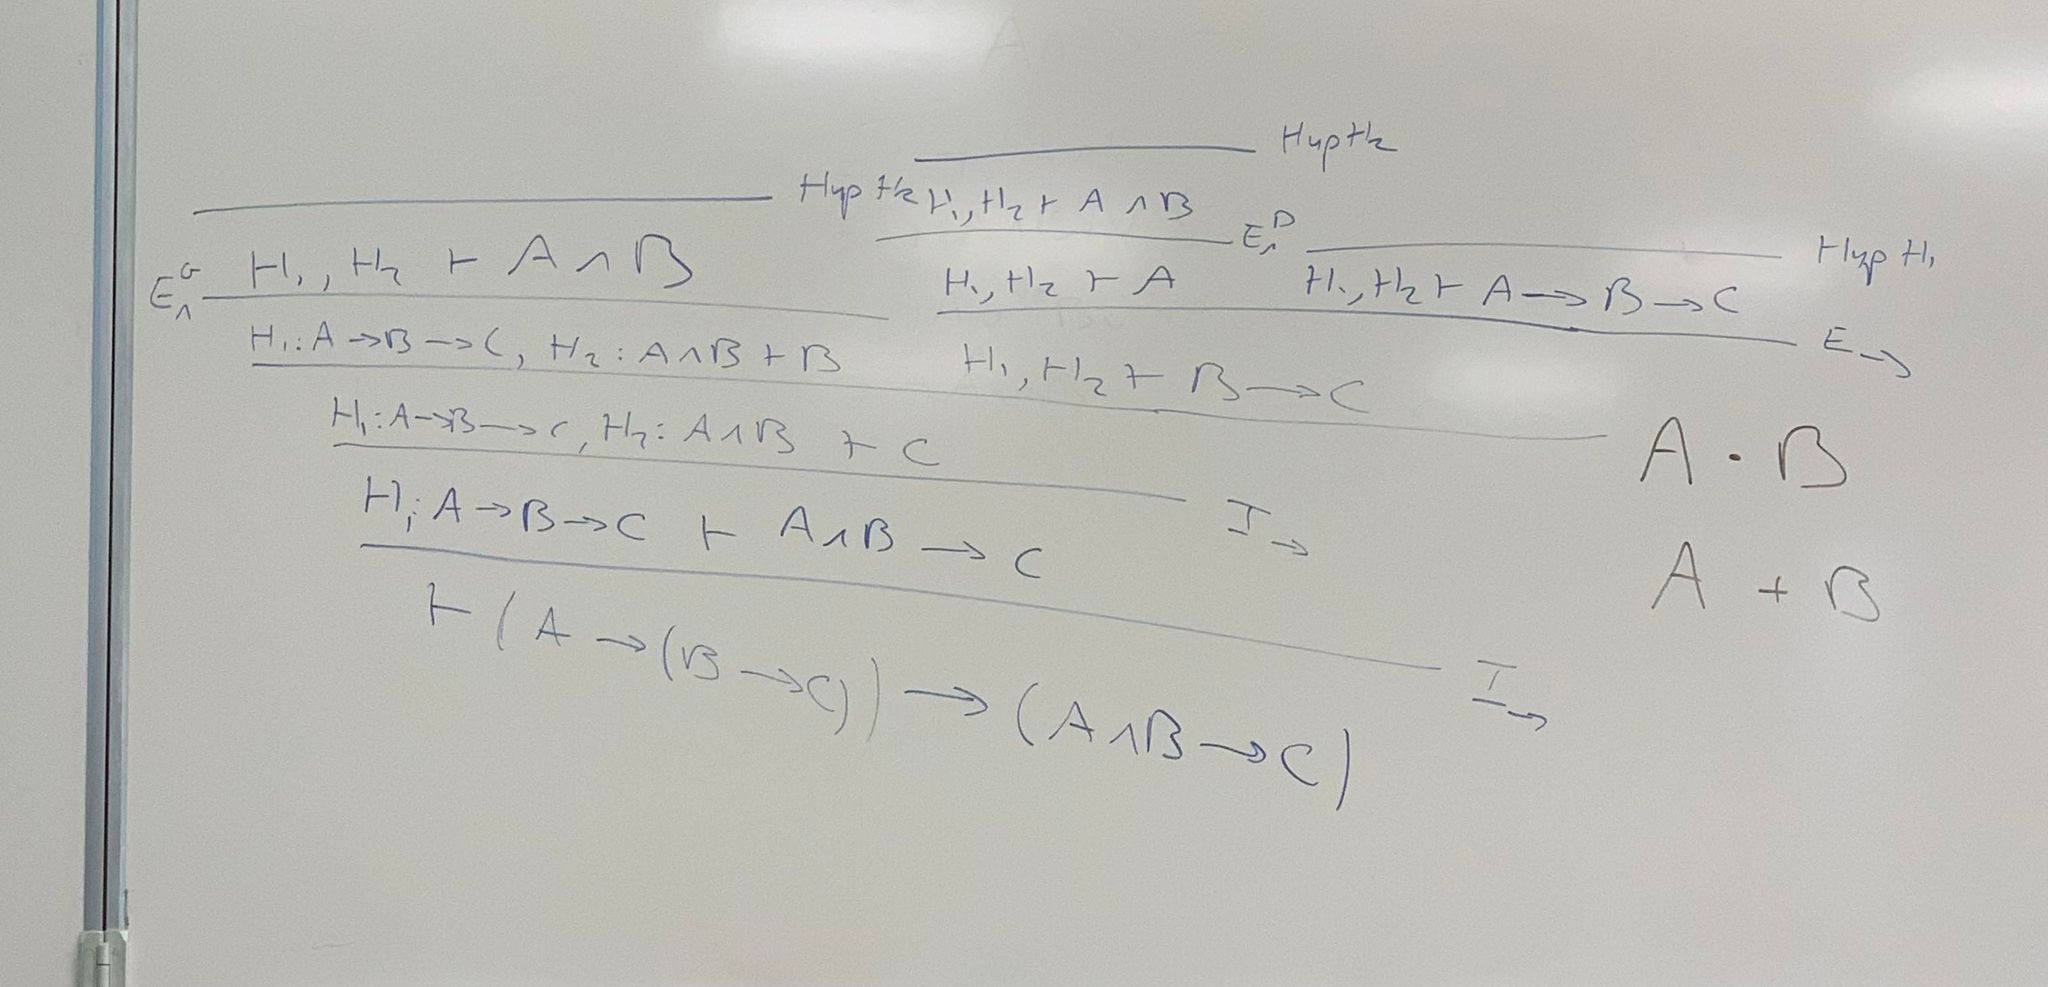 Hyp H₂
Hyp H₂ H₁, H₂ ⊢ A ∧ B
H₁, H₂ ⊢ A ∧ B E∧ᴰ Hyp H₁
E∧ᴳ H₁, H₂ ⊢ A H₁, H₂ ⊢ A → B → C
H₁: A → B → C, H₂: A ∧ B ⊢ B H₁, H₂ ⊢ B → C E→
H₁: A → B → C, H₂: A ∧ B ⊢ C A · B
H₁: A → B → C ⊢ A ∧ B → C I→
A + B
⊢ (A → (B → C)) → (A ∧ B → C) I→